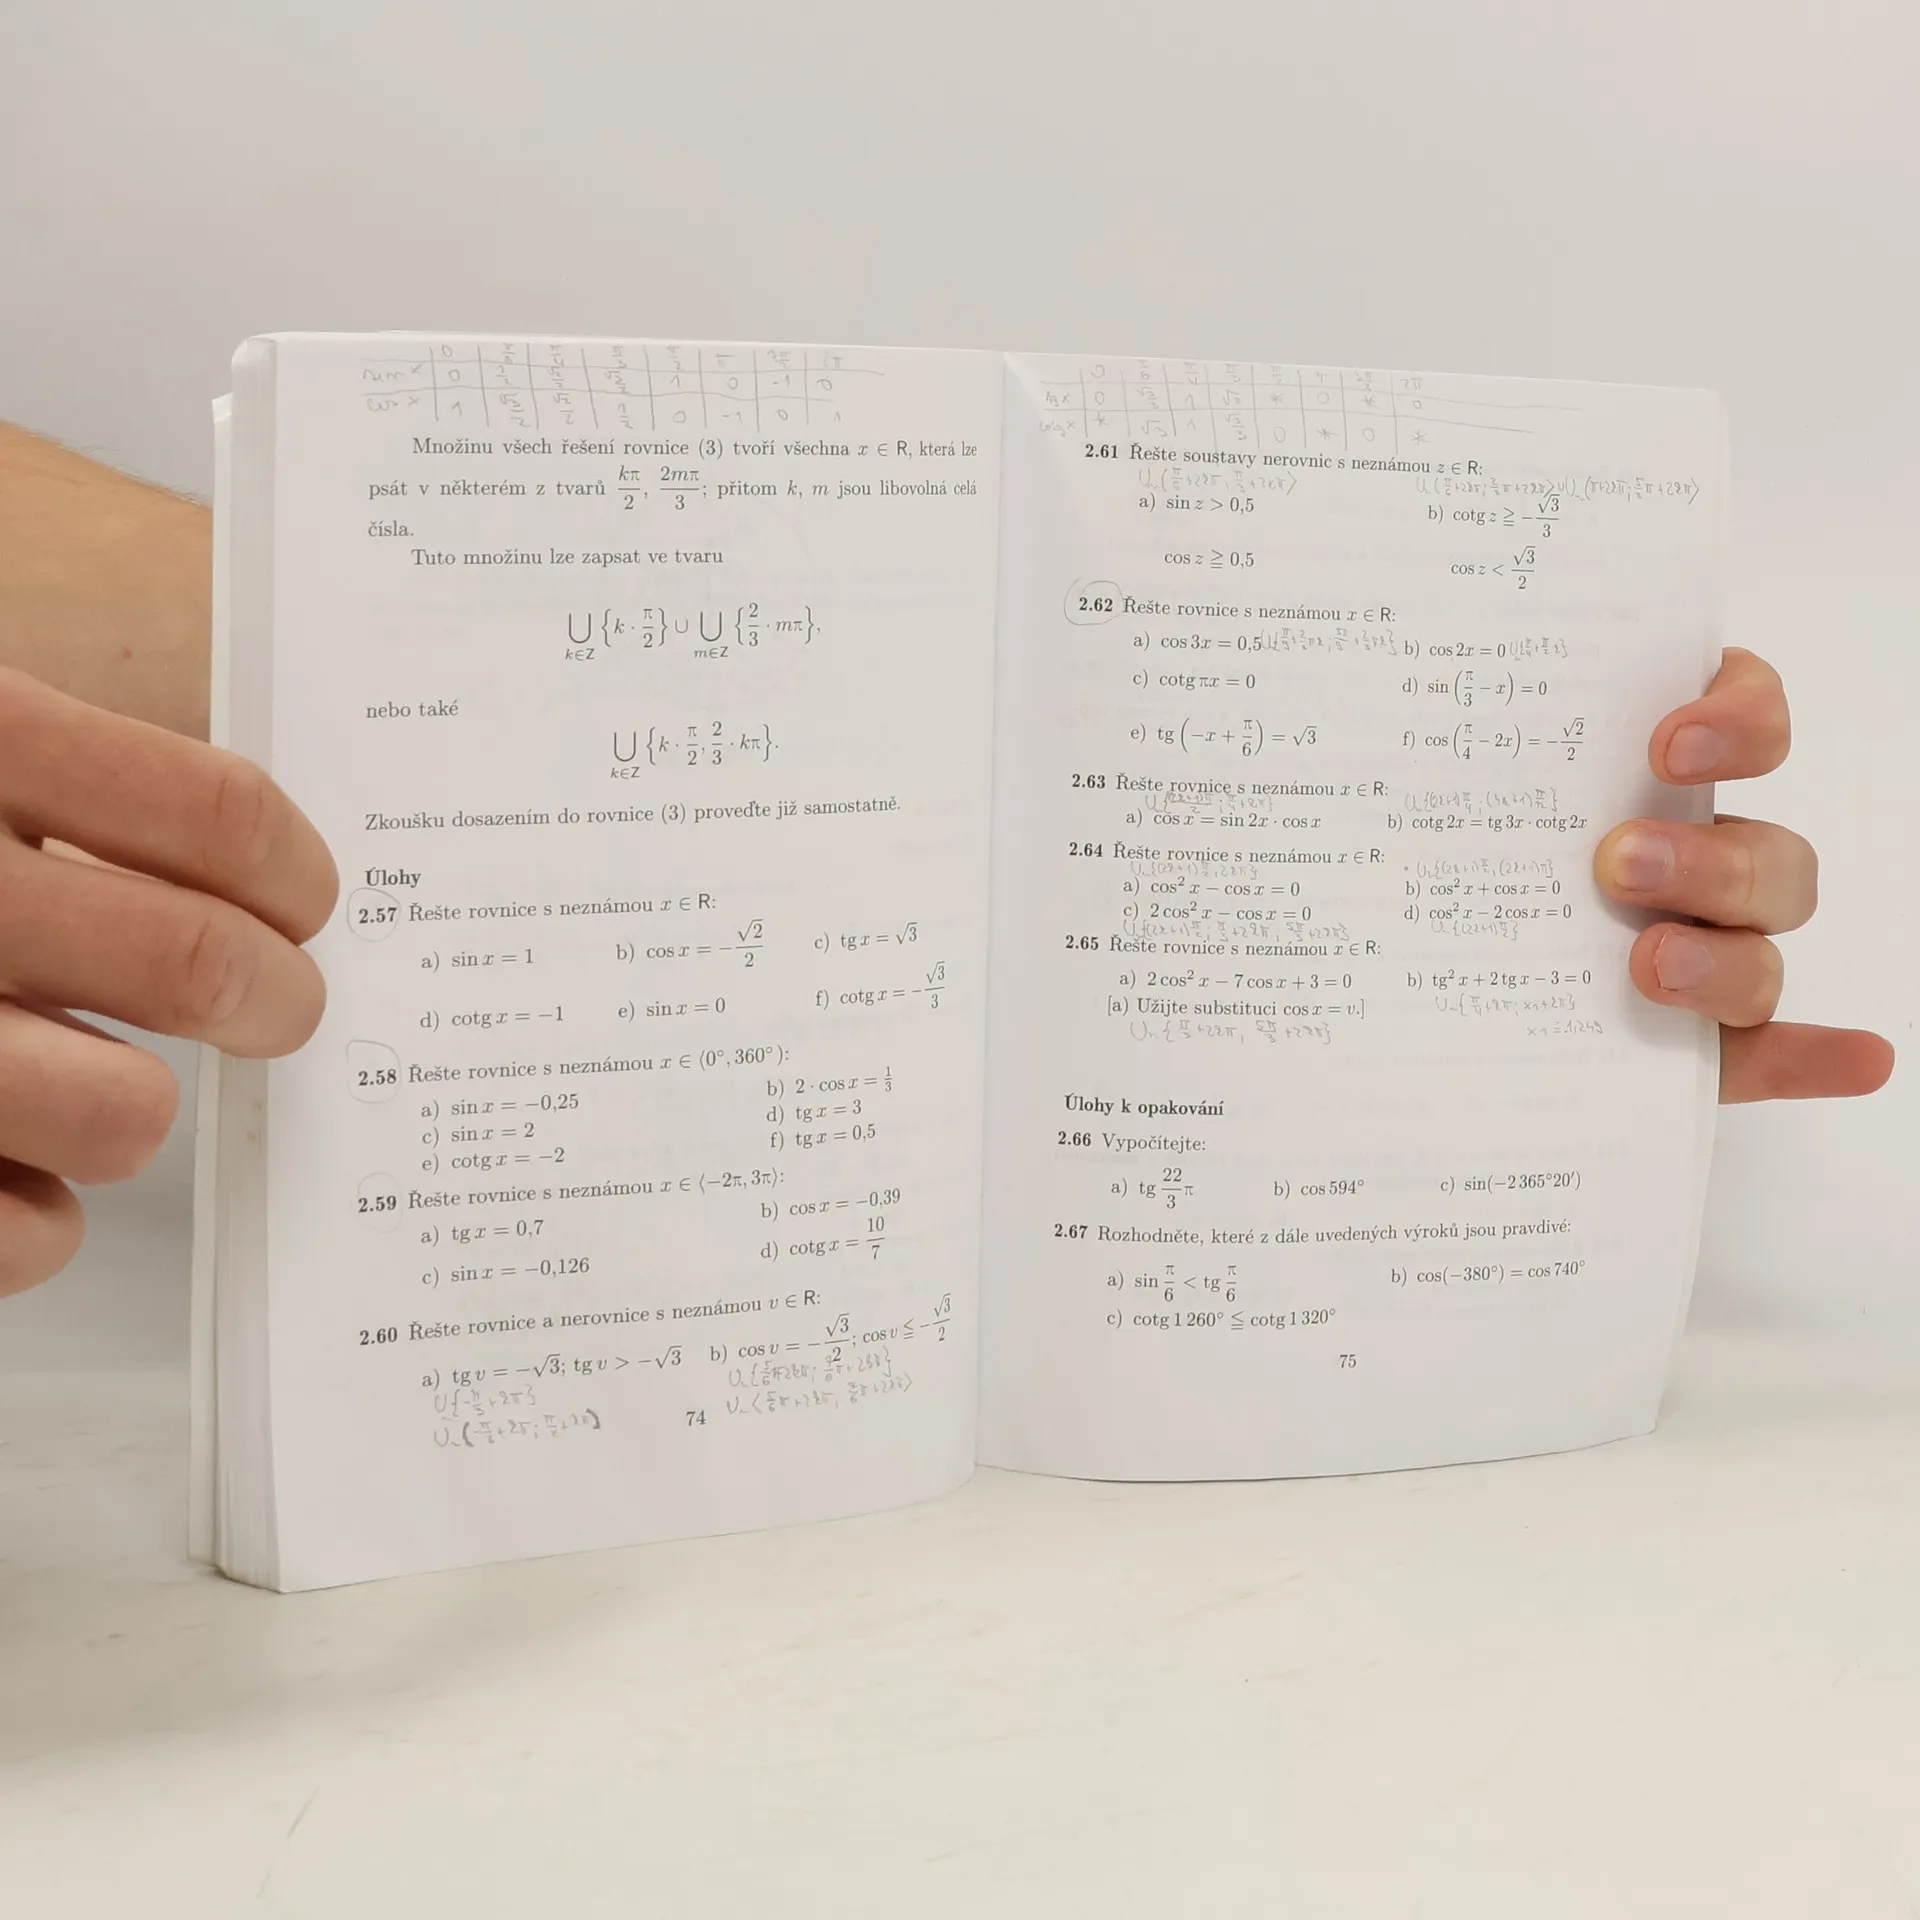 0 2π
sin x 0 1 0 -1 0
cos x 1 0 -1 0 1
Množinu všech řešení rovnice (3) tvoří všechna x ∈ R, která lze
psát v některém z tvarů kπ/2, 2mπ/3; přitom k, m jsou libovolná celá
čísla.
Tuto množinu lze zapsat ve tvaru
⋃_{k∈Z} {k · π/2} ∪ ⋃_{m∈Z} {2/3 · mπ},
nebo také
⋃_{k∈Z} {k · π/2, 2/3 · kπ}.
Zkoušku dosazením do rovnice (3) proveďte již samostatně.
Úlohy
2.57 Řešte rovnice s neznámou x ∈ R:
a) sin x = 1 b) cos x = −√2/2 c) tg x = √3
d) cotg x = −1 e) sin x = 0 f) cotg x = −√3/3
2.58 Řešte rovnice s neznámou x ∈ ⟨0°, 360°):
a) sin x = −0,25 b) 2 · cos x = 1/3
c) sin x = 2 d) tg x = 3
e) cotg x = −2 f) tg x = 0,5
2.59 Řešte rovnice s neznámou x ∈ ⟨−2π, 3π):
a) tg x = 0,7 b) cos x = −0,39
c) sin x = −0,126 d) cotg x = 10/7
2.60 Řešte rovnice a nerovnice s neznámou v ∈ R:
a) tg v = −√3; tg v > −√3 b) cos v = −√3/2; cos v ≦ −√3/2
74
tg x 0 1 * 0 * 0
cotg x * √3 1 0 * 0 *
2.61 Řešte soustavy nerovnic s neznámou z ∈ R:
a) sin z > 0,5 b) cotg z ≧ −√3/3
cos z ≧ 0,5 cos z < √3/2
2.62 Řešte rovnice s neznámou x ∈ R:
a) cos 3x = 0,5 b) cos 2x = 0
c) cotg πx = 0 d) sin (π/3 − x) = 0
e) tg (−x + π/6) = √3 f) cos (π/4 − 2x) = −√2/2
2.63 Řešte rovnice s neznámou x ∈ R:
a) cos x = sin 2x · cos x b) cotg 2x = tg 3x · cotg 2x
2.64 Řešte rovnice s neznámou x ∈ R:
a) cos² x − cos x = 0 b) cos² x + cos x = 0
c) 2 cos² x − cos x = 0 d) cos² x − 2 cos x = 0
2.65 Řešte rovnice s neznámou x ∈ R:
a) 2 cos² x − 7 cos x + 3 = 0 b) tg² x + 2 tg x − 3 = 0
[a) Užijte substituci cos x = v.]
Úlohy k opakování
2.66 Vypočítejte:
a) tg 22/3 π b) cos 594° c) sin(−2 365°20′)
2.67 Rozhodněte, které z dále uvedených výroků jsou pravdivé:
a) sin π/6 < tg π/6 b) cos(−380°) = cos 740°
c) cotg 1 260° ≦ cotg 1 320°
75